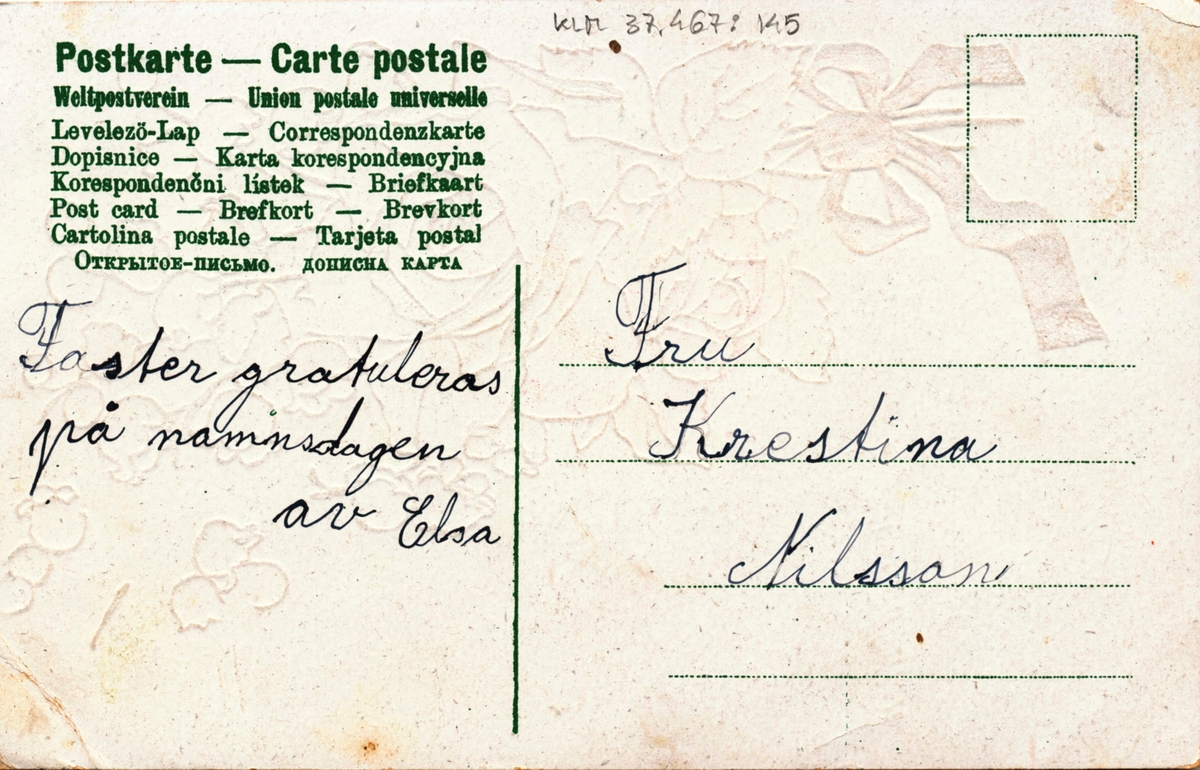 KLM 37.467: 145
Postkarte — Carte postale
Weltpostverein — Union postale universelle
Levelezö-Lap — Correspondenzkarte
Dopisnice — Karta korespondencyjna
Korespondenčni lístek — Briefkaart
Post card — Brefkort — Brevkort
Cartolina postale — Tarjeta postal
Открытое-письмо. дописна карта
Faster gratuleras
på namnsdagen
av Elsa
Fru
Krestina
Nilsson